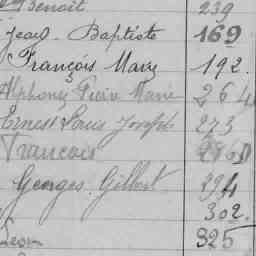 Benoit 239
Jean - Baptiste 169
François Marz 192.
Alphonse Marie 264
Ernest Louis Joseph 273
Francois
Georges Gilbert 294
302.
Léon 325